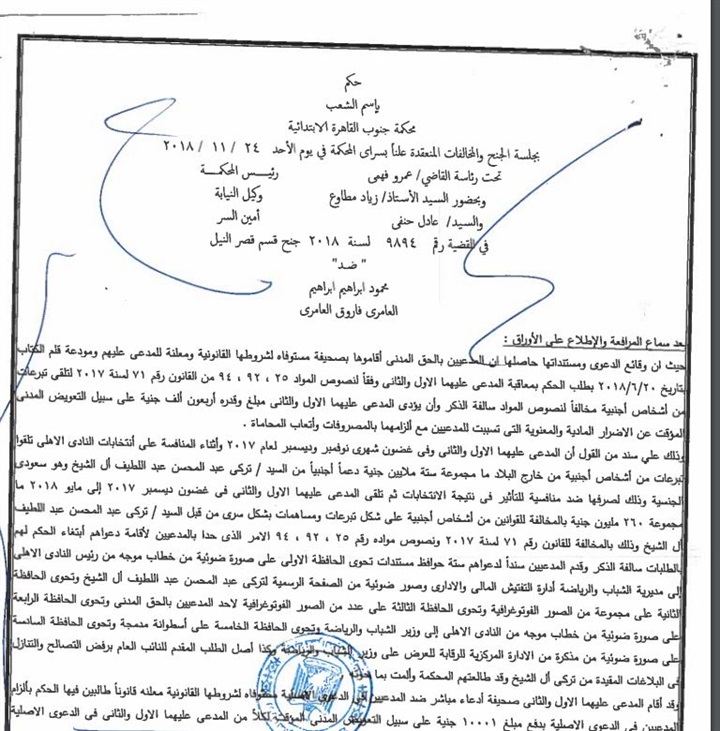 حكم
بإسم الشعب
محكمة جنوب القاهرة الابتدائية
بجلسة الجنح والمخالفات المنعقدة علناً بسراى المحكمة في يوم الأحد ٢٤ / ١١ / ٢٠١٨
تحت رئاسة القاضي/ عمرو فهمى رئيس المحكمة
وبحضور السيد الأستاذ/ زياد مطاوع وكيل النيابة
والسيد/ عادل حنفى أمين السر
في القضية رقم ٩٨٩٤ لسنة ٢٠١٨ جنح قسم قصر النيل
" ضد "
محمود ابراهيم ابراهيم
العامرى فاروق العامرى
بعد سماع المرافعة والإطلاع على الأوراق :
حيث ان وقائع الدعوى ومستنداتها حاصلها ان المدعيين بالحق المدنى أقاموها بصحيفة مستوفاه لشروطها القانونية ومعلنة للمدعى عليهم ومودعة قلم الكتاب
بتاريخ ٢٠١٨/٦/٢٠ بطلب الحكم بمعاقبة المدعى عليهما الاول والثانى وفقاً لنصوص المواد ٢٥ ، ٩٢ ، ٩٤ من القانون رقم ٧١ لسنة ٢٠١٧ لتلقى تبرعات
من أشخاص أجنبية مخالفاً لنصوص المواد سالفة الذكر وأن يؤدى المدعى عليهما الاول والثانى مبلغ وقدره أربعون ألف جنية على سبيل التعويض المدنى
المؤقت عن الاضرار المادية والمعنوية التى تسببت للمدعيين مع ألزامهما بالمصروفات وأتعاب المحاماة .
وذلك علي سند من القول أن المدعى عليهما الاول والثانى وفى غضون شهرى نوفمبر وديسمبر لعام ٢٠١٧ وأثناء المنافسة على أنتخابات النادى الاهلى تلقوا
تبرعات من أشخاص أجنبية من خارج البلاد ما مجموعة ستة ملايين جنية دعماً أجنبياً من السيد / تركى عبد المحسن عبد اللطيف أل الشيخ وهو سعودى
الجنسية وذلك لصرفها ضد منافسية للتأثير فى نتيجة الانتخابات ثم تلقى المدعى عليهما الاول والثانى فى غضون ديسمبر ٢٠١٧ إلى مايو ٢٠١٨ ما
مجموعة ٢٦٠ مليون جنية بالمخالفة للقوانين من أشخاص أجنبية على شكل تبرعات ومساهمات بشكل سرى من قبل السيد / تركى عبد المحسن عبد اللطيف
أل الشيخ وذلك بالمخالفة للقانون رقم ٧١ لسنة ٢٠١٧ ونصوص مواده رقم ٢٥ ، ٩٢ ، ٩٤ الامر الذى حدا بالمدعيين لأقامة دعواهم أبتغاء الحكم لهم
بالطلبات سالفة الذكر وقدم المدعيين سنداً لدعواهم ستة حوافظ مستندات تحوى الحافظة الاولى على صورة ضوئية من خطاب موجه من رئيس النادى الاهلى
إلى مديرية الشباب والرياضة أدارة التفتيش المالى والادارى وصور ضوئية من الصفحة الرسمية لتركى عبد المحسن عبد اللطيف أل الشيخ وتحوى الحافظة
الثانية على مجموعة من الصور الفوتوغرافية وتحوى الحافظة الثالثة على عدد من الصور الفوتوغرافية لاحد المدعيين بالحق المدنى وتحوى الحافظة الرابعة
على صورة ضوئية من خطاب موجه من النادى الاهلى إلى وزير الشباب والرياضة وتحوى الحافظة الخامسة على أسطوانة مدمجة وتحوى الحافظة السادسة
على صورة ضوئية من مذكرة من الادارة المركزية للرقابة للعرض على وزير الشباب والرياضة وكذا أصل الطلب المقدم للنائب العام برفض التصالح والتنازل
فى البلاغات المقيدة من تركى أل الشيخ وقد طالعتهم المحكمة وألمت بما حوته .
وقد أقام المدعى عليهما الاول والثانى صحيفة أدعاء مباشر ضد المدعيين فى الدعوى الاصلية مستوفاه لشروطها القانونية معلنه قانوناً طالبين فيها الحكم بألزام
المدعيين فى الدعوى الاصلية بدفع مبلغ ١٠٠٠١ جنية على سبيل التعويض المدنى المؤقت لكلاً من المدعى عليهما الاول والثانى فى الدعوى الاصلية